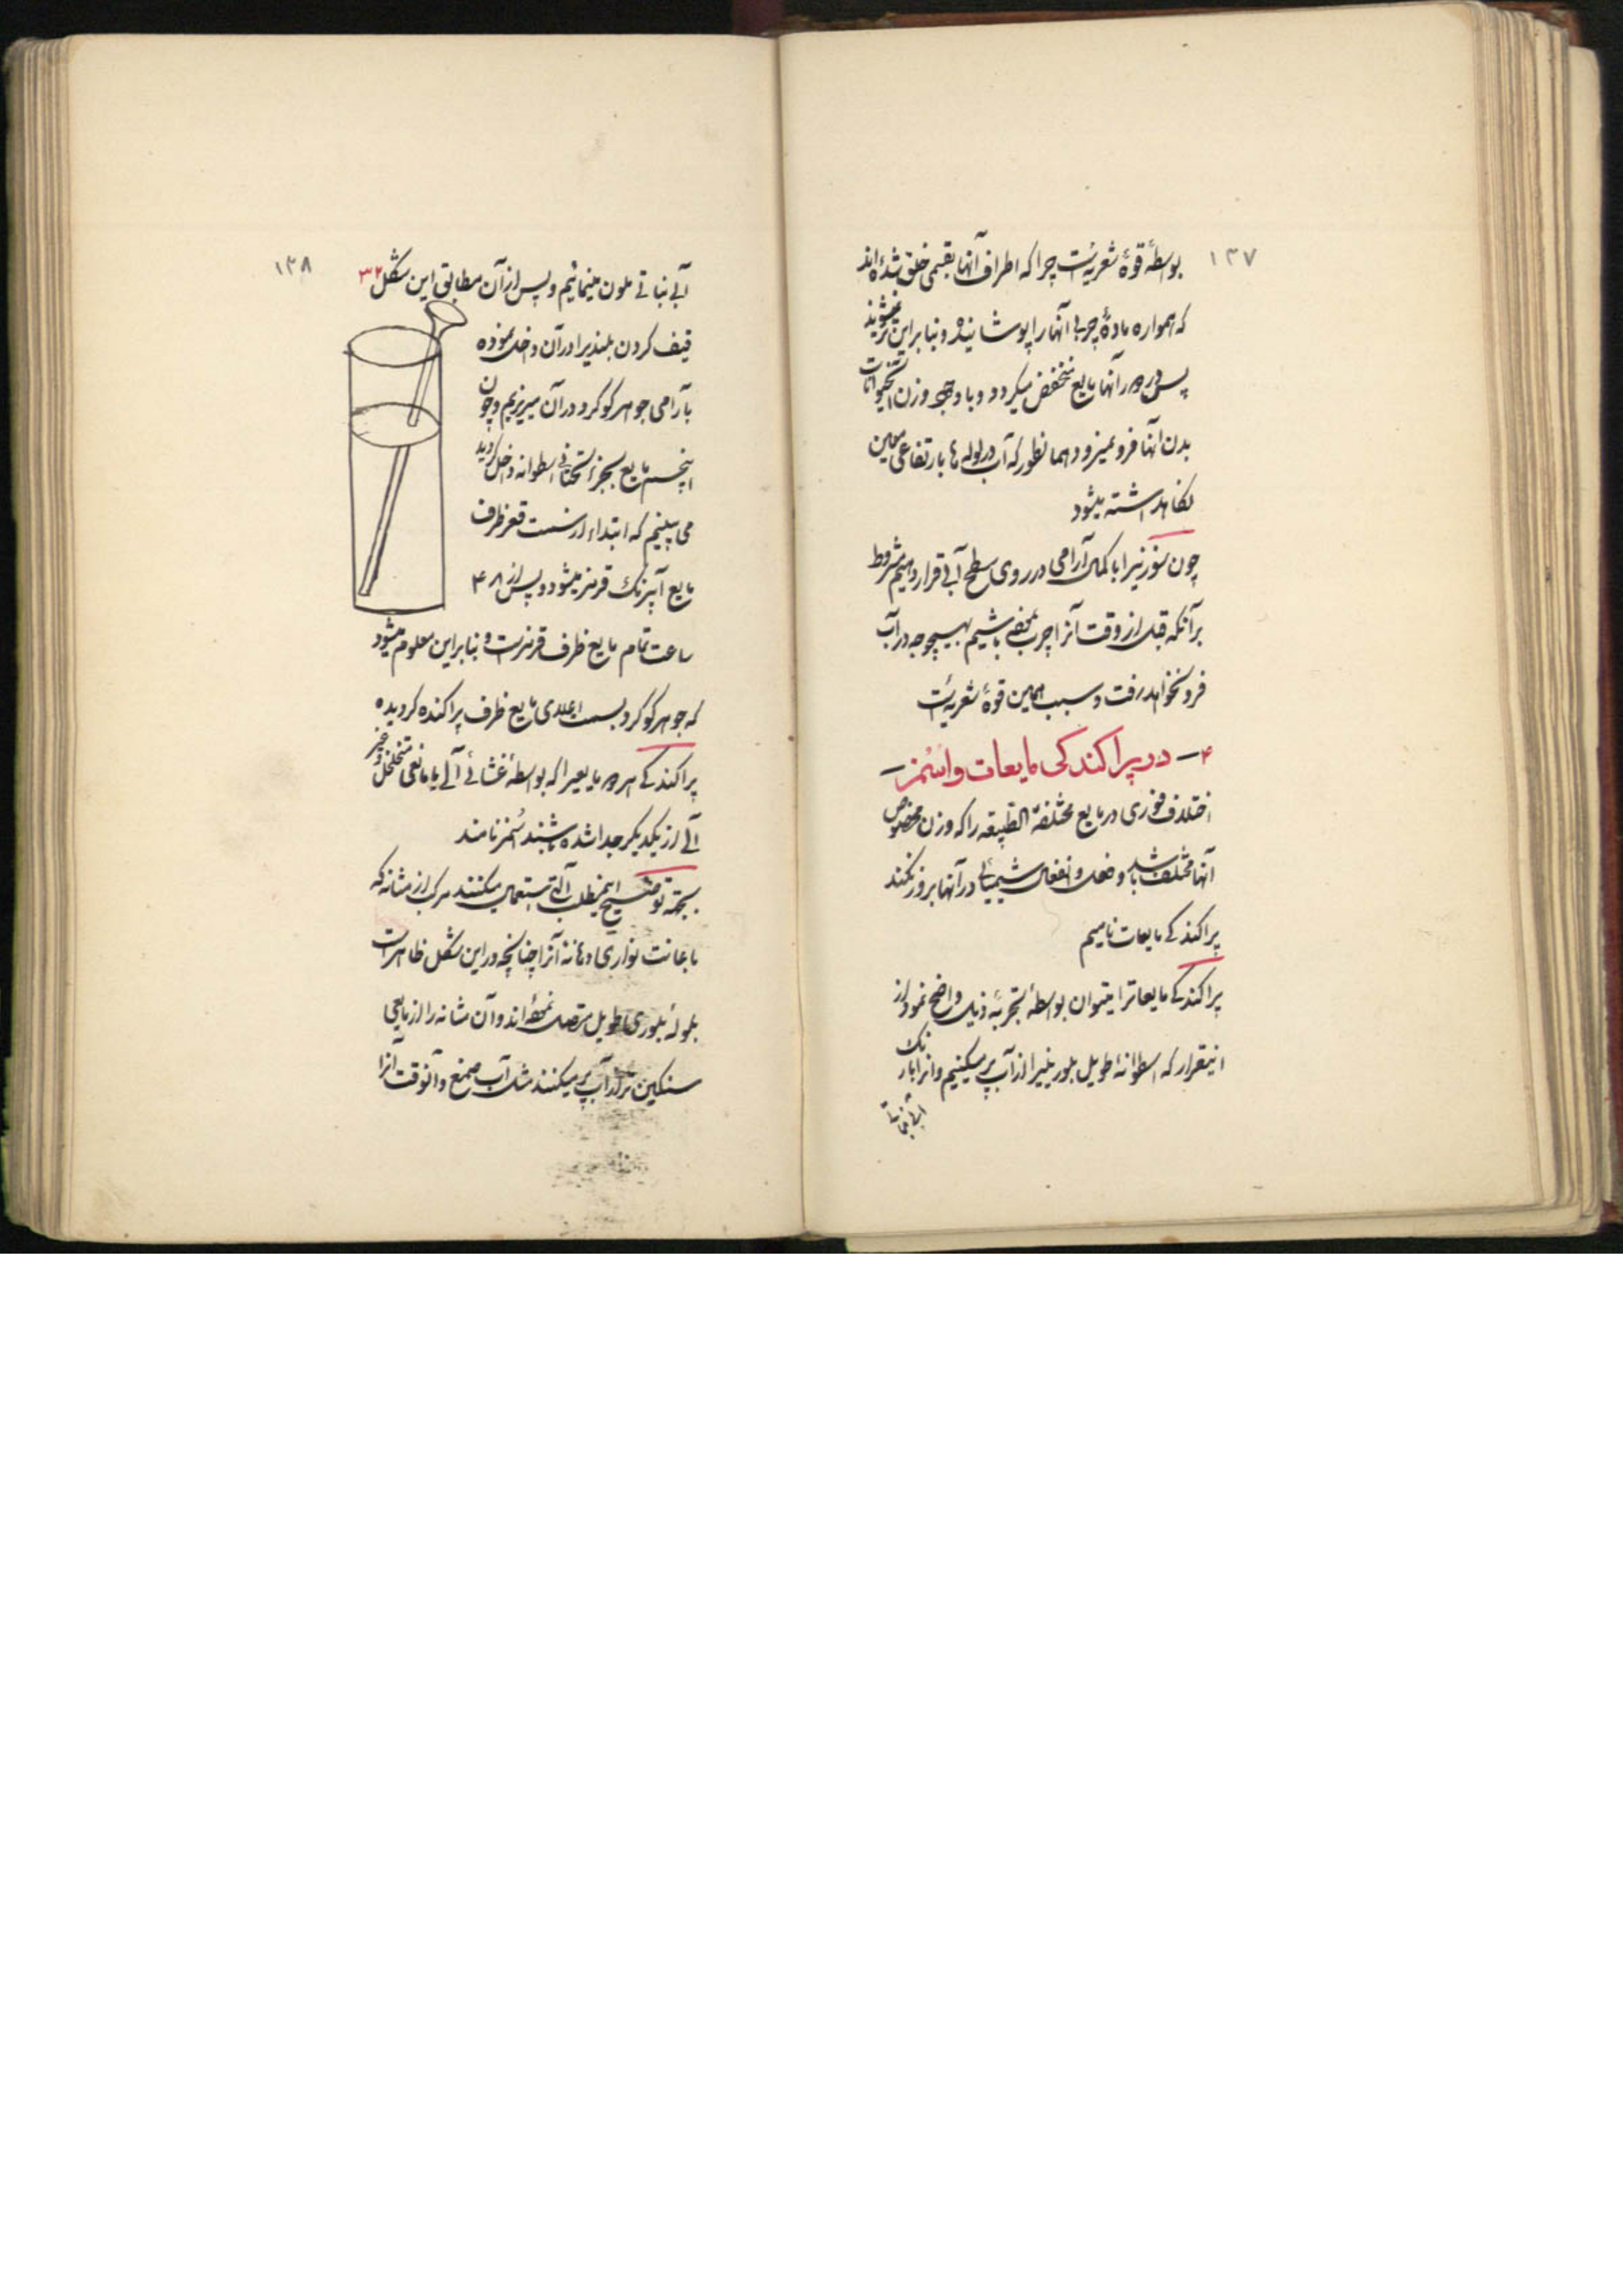 ۱۳۷
بواسطهٔ قوهٔ شعریه است چرا که اطراف آنها بقسمی خلق شده‌اند
که همواره مادهٔ چربی آنها را پوشانیده و بنابراین تر نمیشوند
پس در دور آنها مایع منخفض میگردد و با وجود وزن این حیوانات
بدن آنها فرو نمیرود همانطور که آب در لوله ها بارتفاعی معین
نگاهداشته میشود
چون سوزنیرا با کمال آرامی در روی سطح آبی قرار دهیم مشروط
بر آنکه قبل از وقت آنرا چرب نموده باشیم بهیچوجه در آب
فرو نخواهد رفت و سبب همین قوهٔ شعریه است
۴- در پراکندکی مایعات و اسمز-
اختلاف فوری دو مایع مختلفة الطبیعه را که وزن مخصوص
آنها مختلف باشد و فعل و انفعال شیمیائی در آنها بروز نکند
پراکندکی مایعات نامیم
پراکندکی مایعاترا میتوان بواسطهٔ تجربهٔ ذیل واضح نمود از
اینقرار که اسطوانهٔ طویل بلورینیرا از آب پر میکنیم و آنرا با رنک
آبی نباتی
۱۳۸
آبی نباتی ملون مینمائیم و پس از آن مطابق این شکل ۳۲
قیف کردن بلندیرا در آن داخل نموده
بآرامی جوهر کوکرد در آن میریزیم و چون
اینجسم مایع بجزء تحتانی اسطوانه داخل کردید
می بینیم که ابتداء از سمت قعر ظرف
مایع آبیرنک قرمز میشود و پس از ۴۸
ساعت تمام مایع ظرف قرمز است و بنابراین معلوم میشود
که جوهر کوکرد بسمت اعلای مایع ظرف پراکنده کردیده
پراکندکی هر دو مایعیرا که بواسطهٔ غشائی آلی یا مانعی متخلخل و غیر
آلی از یکدیکر جدا شده باشند اسمز نامند
بجهة توضیح اینمطلب آلتی استعمال میکنند مرکب از مثانه که
باعانت نواری دهانه آنرا چنانچه در این شکل ظاهر است
بلولهٔ بلوری طویل متصل نموده‌اند و آن مثانه را از مایعی
سنکین تر از آب پر میکنند مثل آب صمغ و آنوقت آنرا